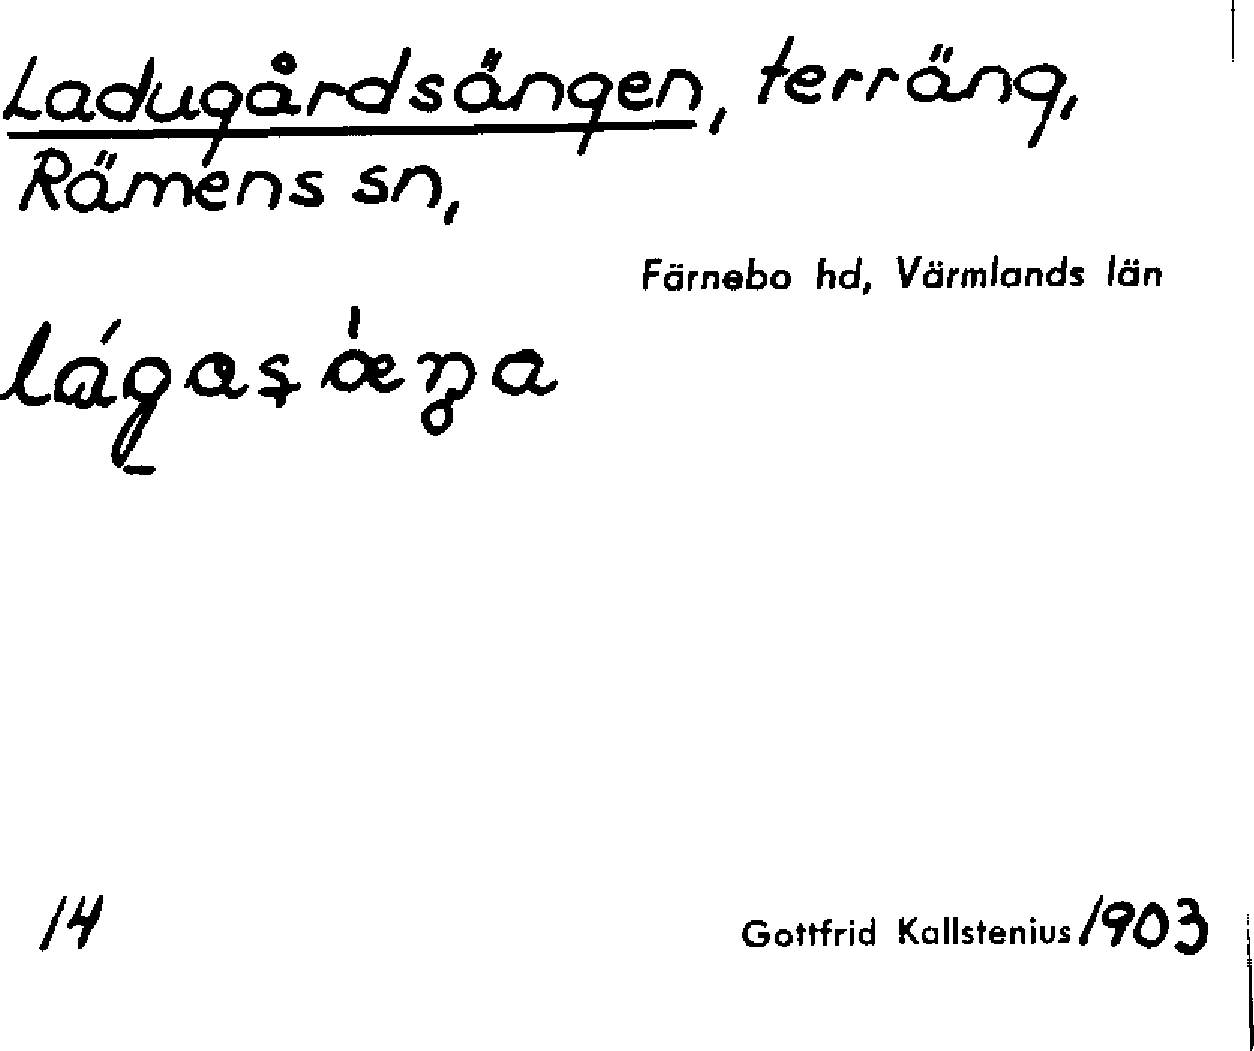 Ladugårdsängen, terräng,
Rämens sn,
Färnebo hd, Värmlands län
14
Gottfrid Kallstenius 1903